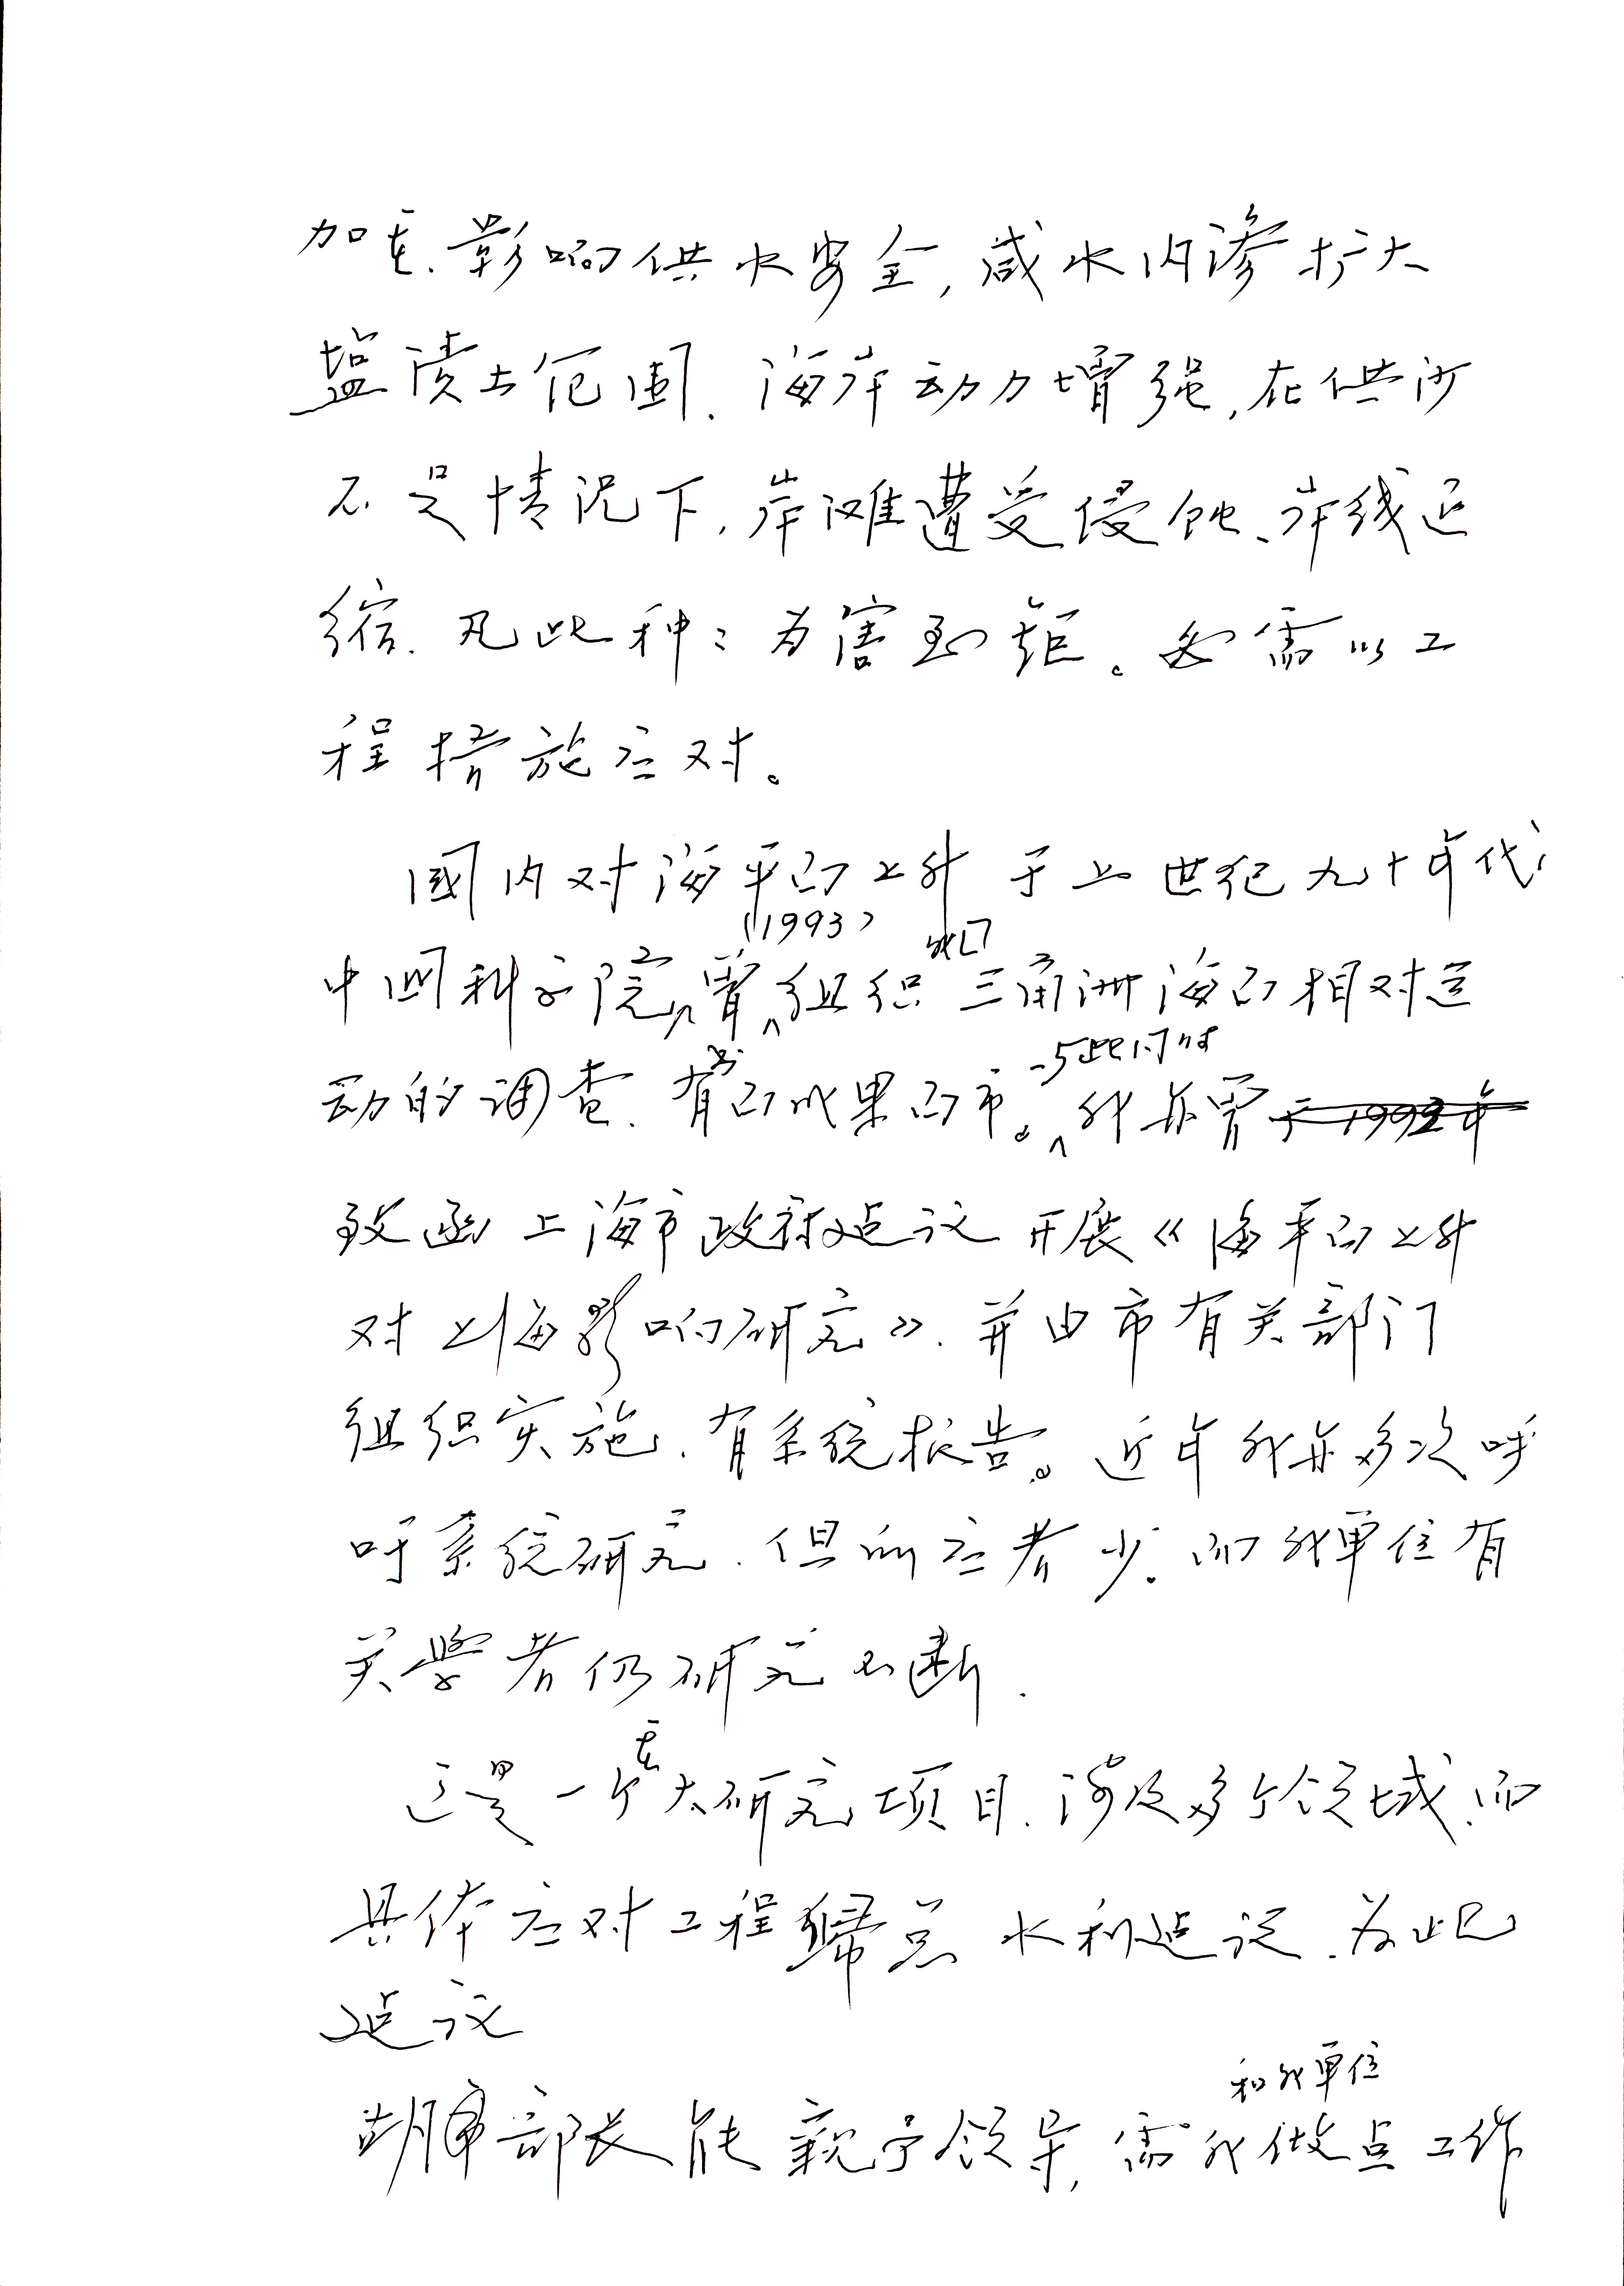 加重、影响供水安全，咸水内渗扩大
盐渍土范围、海岸动力增强，在供沙
不足情况下，岸滩遭受侵蚀、岸线后
缩、凡此种々为害至矩。必需以工
程措施应对。
国内对海平面上升于上世纪九十年代，
中国科学院，曾(1993)组织三角洲海面相对运
动的调查、有成果面市。与此同时我亦曾
致函上海市政府建议开展《海平面上升
对上海影响研究》、并由市有关部门
组织实施、有系统报告。近年我亦多次呼
吁系统研究、但响应者少。而我单位有
关学者仍研究不断.
这是一个重大研究项目、涉及多个领域、而
具体应对工程归总水利建设、为此
建议
胡 部长能亲予领导，需我和我单位做点工作